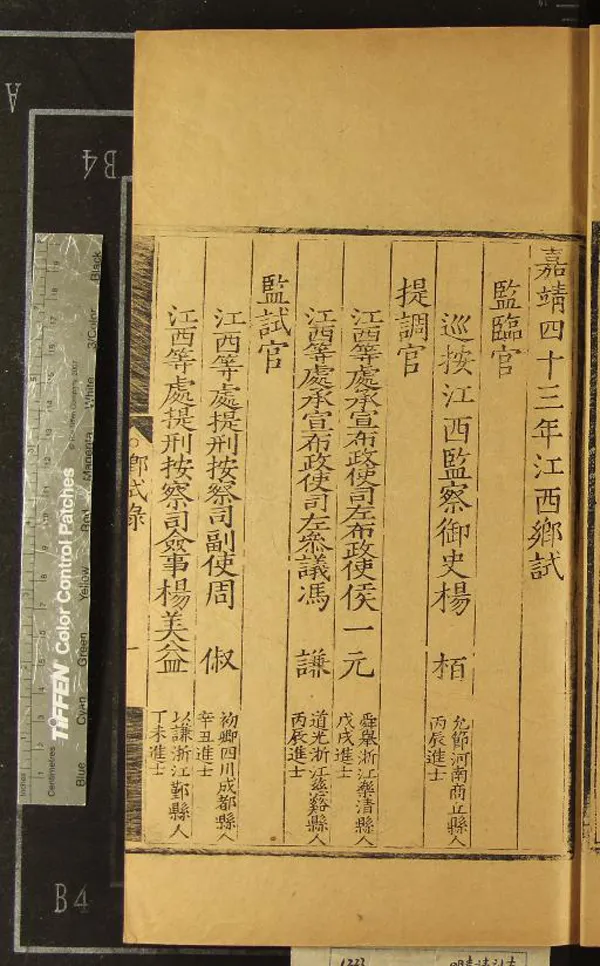 嘉靖四十三年江西鄉試
監臨官
巡按江西監察御史楊 栢
允節河南商丘縣人
丙辰進士
提調官
江西等處承宣布政使司左布政使侯一元
舜舉浙江樂清縣人
戊戌進士
江西等處承宣布政使司左叅議馮 謙
道光浙江慈谿縣人
丙辰進士
監試官
江西等處提刑按察司副使周 俶
初卿四川成都縣人
辛丑進士
江西等處提刑按察司僉事楊美益
以謙浙江鄞縣人
丁未進士
鄉試錄
一
A
B4
B4
TIFFEN Color Control Patches
Inches
Centimetres
Blue
Cyan
Green
Yellow
Red
Magenta
White
3/Color
Black